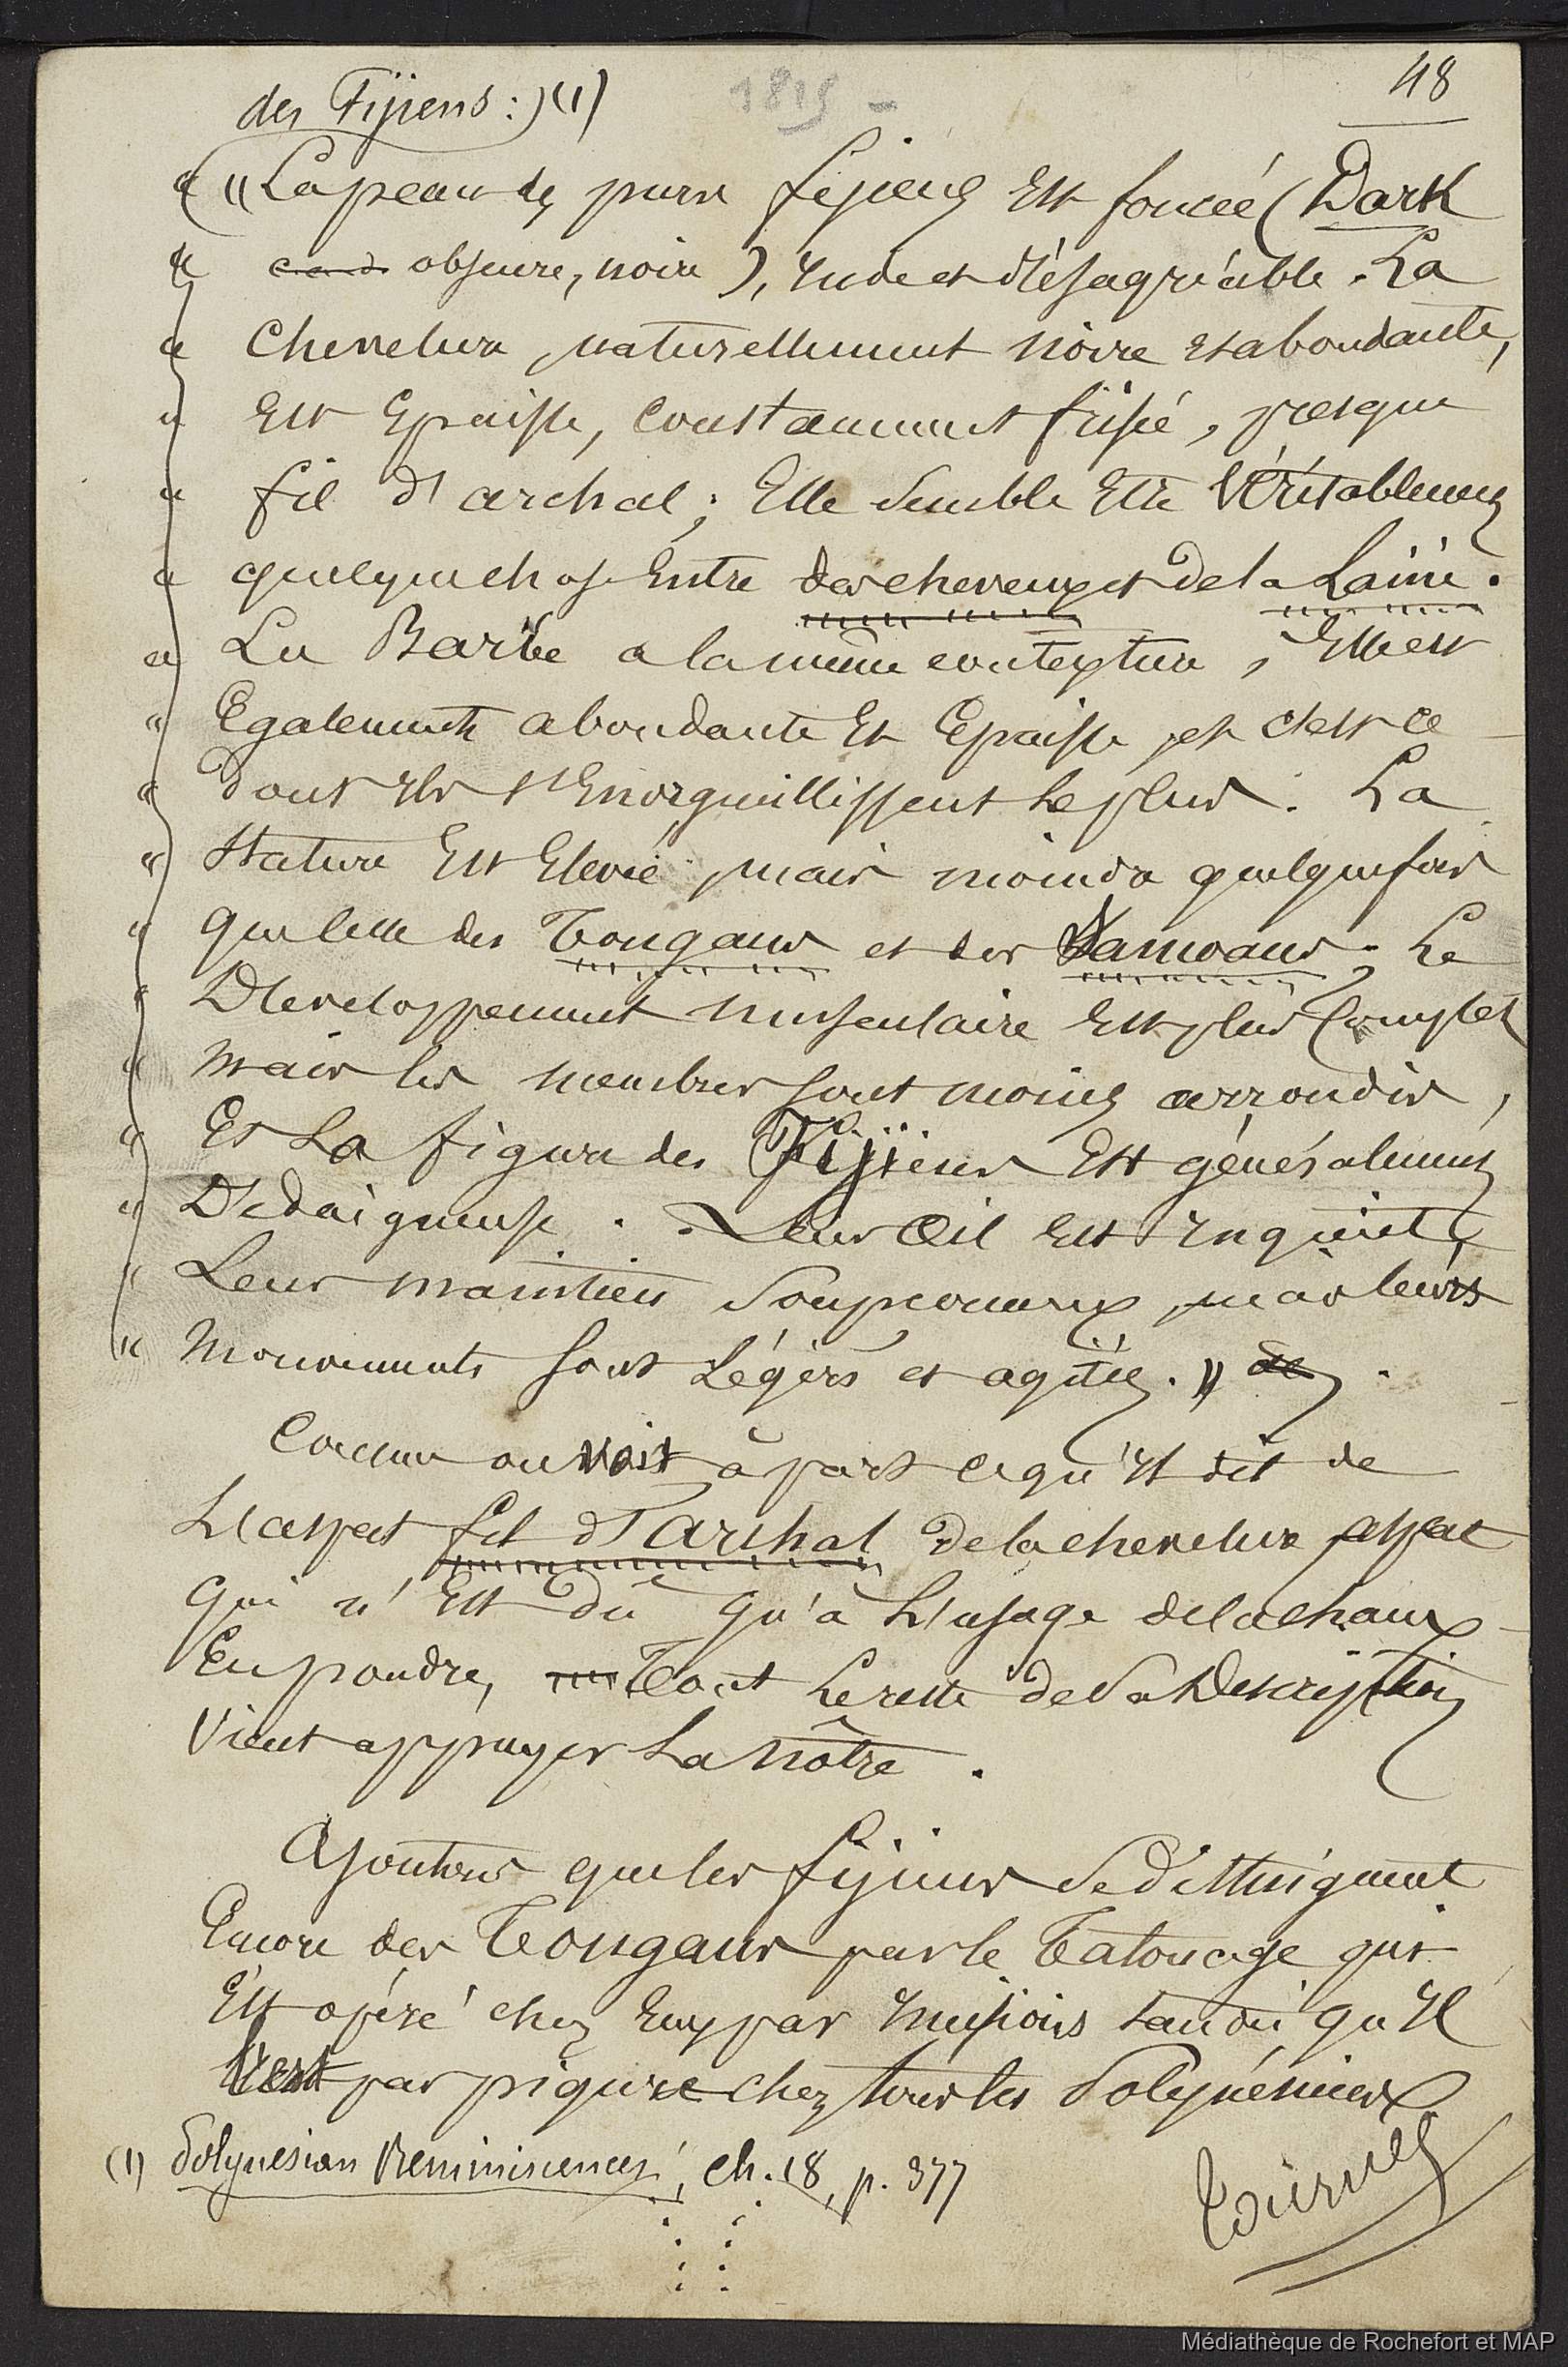 48
1815 -
des Fijiens :) (1)
« "La peau des purs fijiens Est foncée (Dark
« obscure, noire), rude et désagréable. La
« Chevelure, naturellement noire et abondante,
« Est Epaisse, Constamment frisée, presque
« fil d'archal; Elle semble Etre Véritablement
« quelque chose Entre des cheveux et de la Laine.
« La Barbe a la même contexture, Elle est
« Egalement abondante Et Epaisse, et c'est ce
« dont Ils s'Enorgueillissent le plus. La
« Stature Est Elevée, mais moindre quelquefois
« que celle des Tongans et des Samoans; Le
« Développement musculaire Est plus Complet
« mais les membres sont moins arrondis,
« Et La figure des Fijiens Est généralement
« Dédaigneuse. Leur Œil Est Inquiet,
« Leur maintien Soupçonneux, mais leurs
« Mouvements sont Légers et agités. » de.
Comme on voit, à part ce qu'Il dit de
L'aspect fil d'archal de la chevelure, aspect
qui n'Est dû qu'à L'usage de la chaux
En poudre, Tout Le reste de Sa Description
Vient appuyer La nôtre.
Ajoutons que les fijiens Se distinguent
Encore des Tongans par le Tatouage qui
Est opéré chez Eux par Incisions tandis qu'Il
l'est par piqure chez tous les Polynésiens
(1) Polynesian Reminiscences, ch. 18, p. 377
Tournez
Médiathèque de Rochefort et MAP